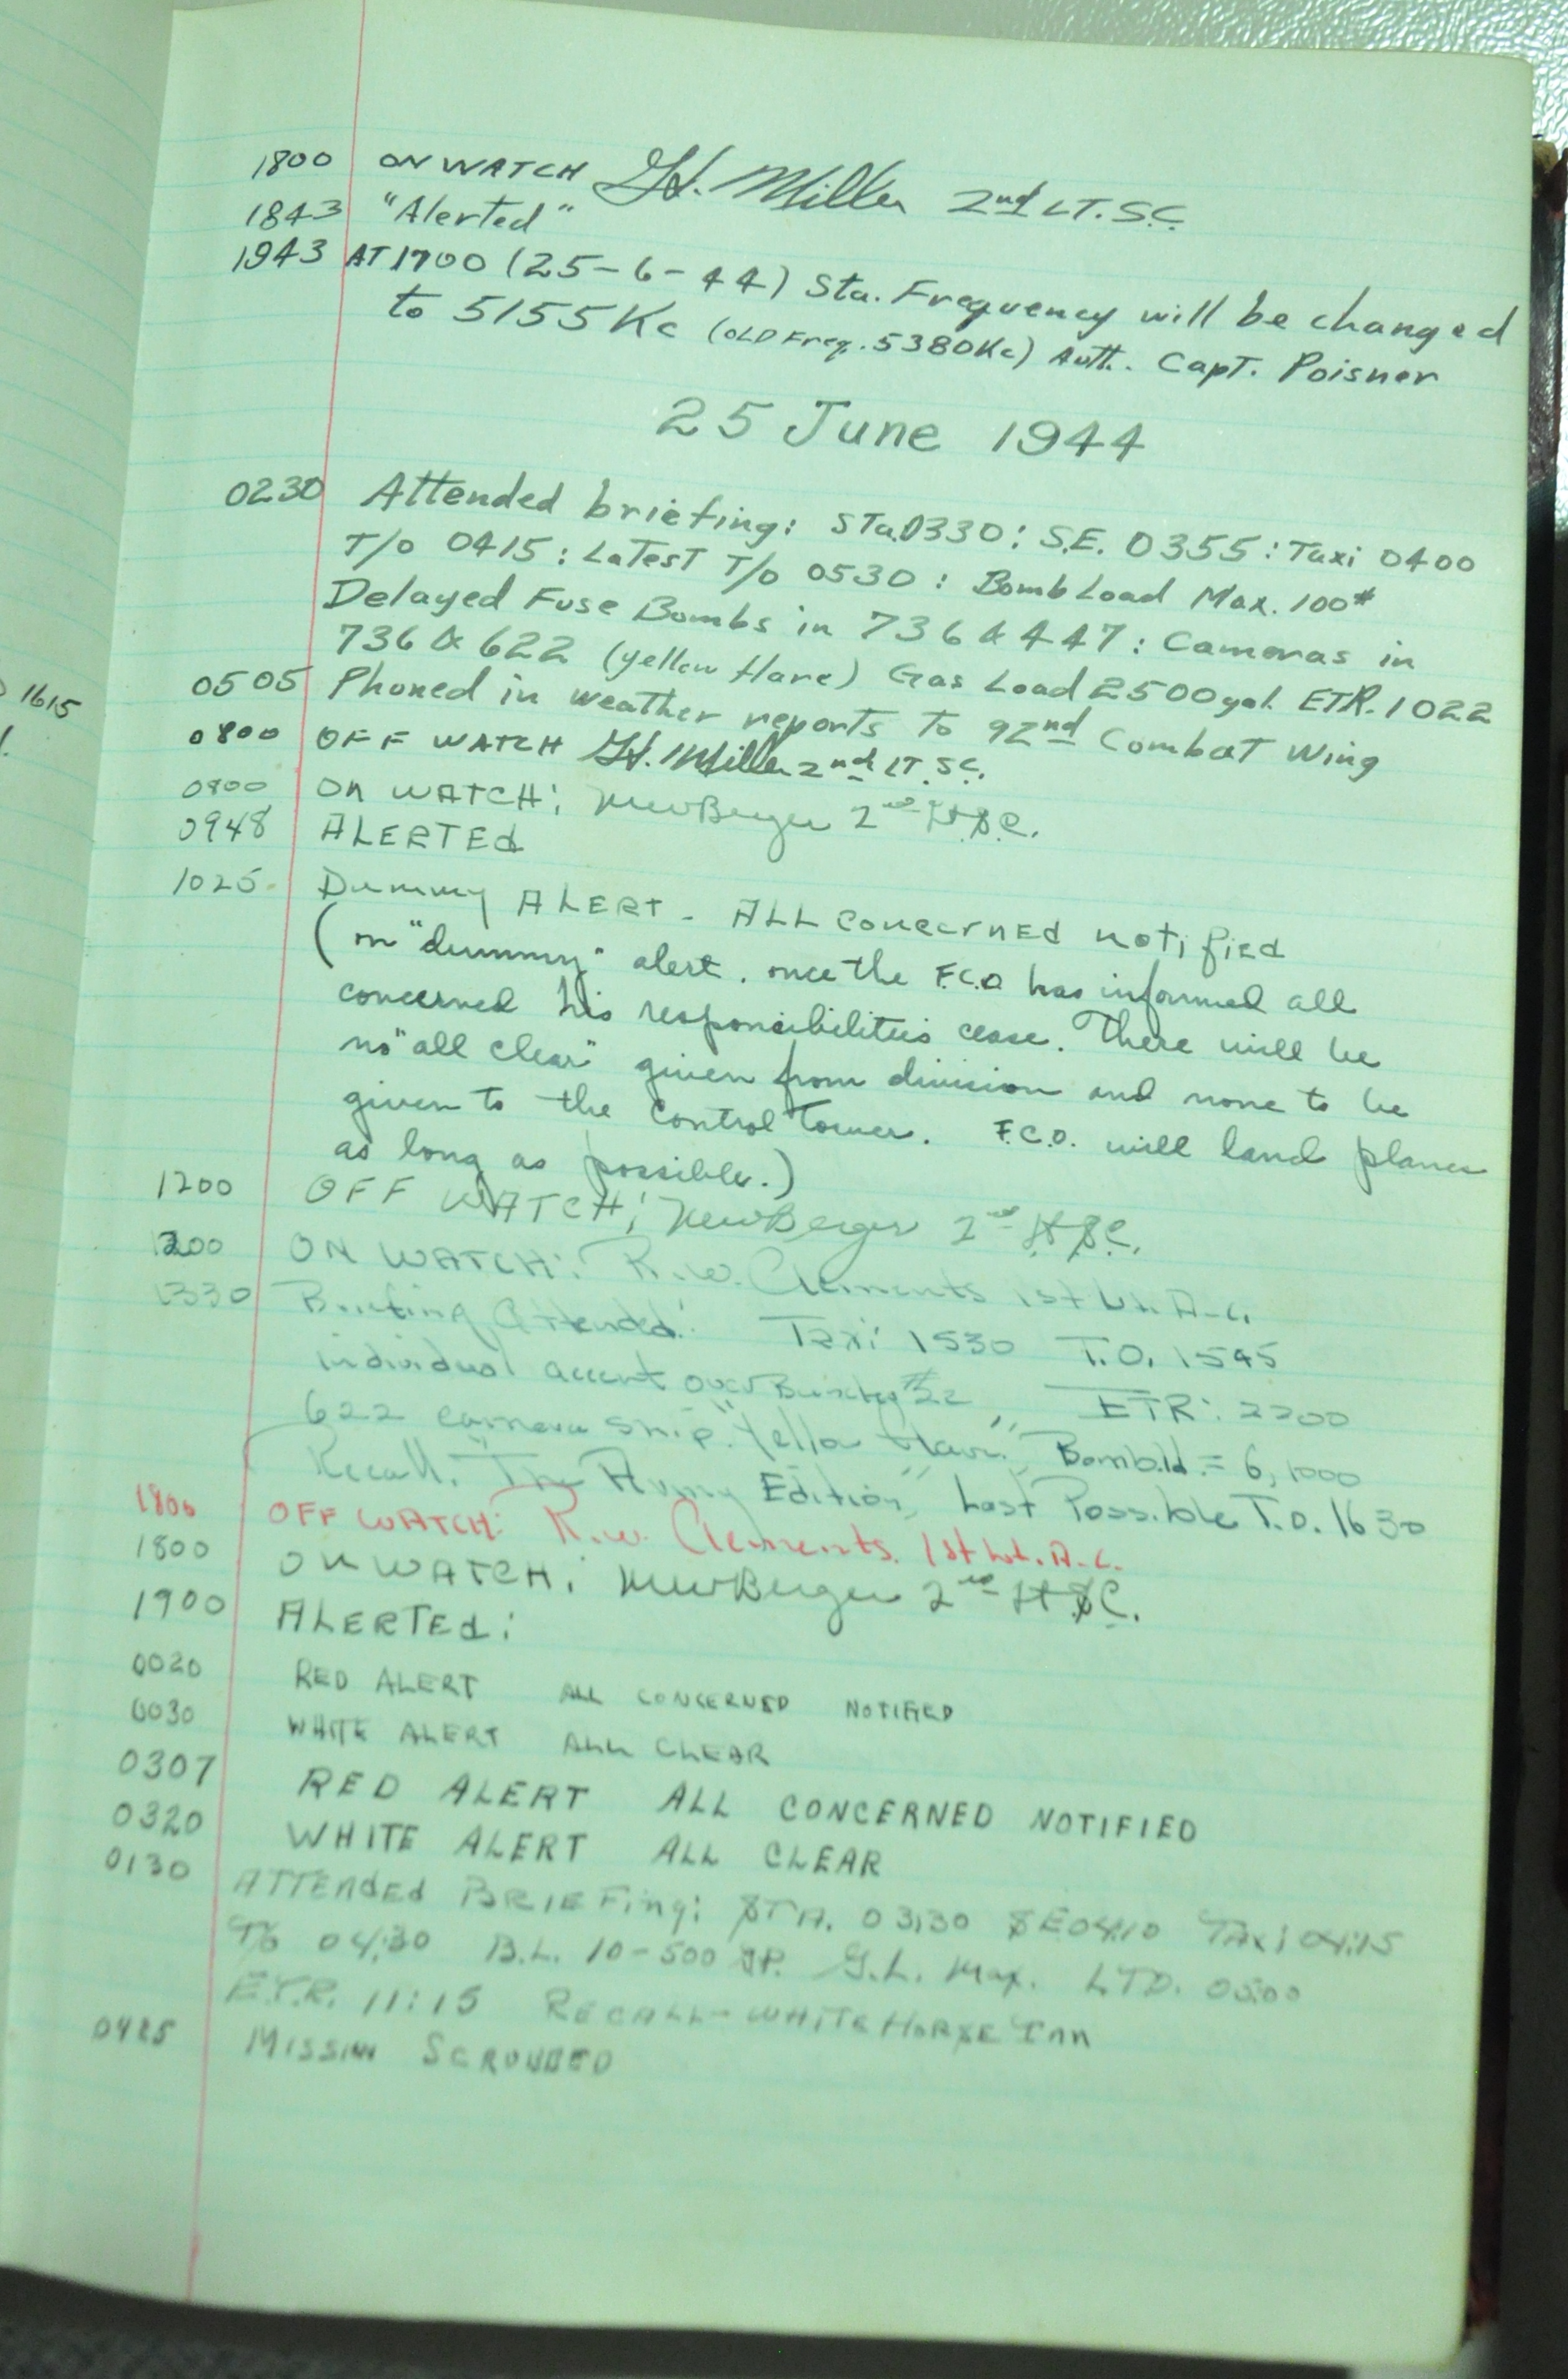 1800 ON WATCH G.H. Miller 2nd LT. S.C.
1843 "Alerted"
1943 AT 1700 (25-6-44) Sta. Frequency will be changed
to 5155 Kc (OLD Freq. 5380Kc) Auth. Capt. Poisner
25 June 1944
0230 Attended briefing: STa. 0330: S.E. 0355: Taxi 0400
T/O 0415: LaTesT T/O 0530: Bomb Load Max. 100#
Delayed Fuse Bombs in 736 & 447: Cameras in
736 & 622 (yellow flare) Gas Load 2500 gal. ETR. 1022
0505 Phoned in weather reports to 92nd Combat Wing
0800 OFF WATCH G.H. Miller 2nd LT. S.C.
0800 ON WATCH: NewBerger 2nd Lt S.C.
0948 ALERTEd
1025 Dummy ALERT - ALL concerned notified
(on "dummy" alert, once the F.C.O has informed all
concerned his responsibilities cease. There will be
no "all clear" given from division and none to be
given to the Control Tower. F.C.O. will land planes
as long as possible.)
1200 OFF WATCH: NewBerger 2nd Lt S.C.
1200 ON WATCH: R.W. Clements 1st Lt. A.C.
1330 Briefing Attended: Taxi 1530 T.O. 1545
individual accent over Buncher #22 ETR: 2200
622 camera ship. "Yello flare" Bomb.ld. = 6, 1000
Recall. "The Edition" Last Possible T.O. 1630
1800 OFF WATCH: R.W. Clements. 1st Lt. A.C.
1800 ON WATCH: NewBerger 2nd Lt S.C.
1900 ALERTEd:
0020 RED ALERT ALL CONCERNED NOTIFIED
0030 WHITE ALERT ALL CLEAR
0307 RED ALERT ALL CONCERNED NOTIFIED
0320 WHITE ALERT ALL CLEAR
0130 ATTENdEd BRIEFing: STA. 03:30 SE 04:10 TAXi 04:15
T/O 04:30 B.L. 10-500 G.P. G.L. Max. LTO. 05:00
E.T.R. 11:15 RECALL - WHITE HORSE Inn
MISSION SCRUBBED
1615